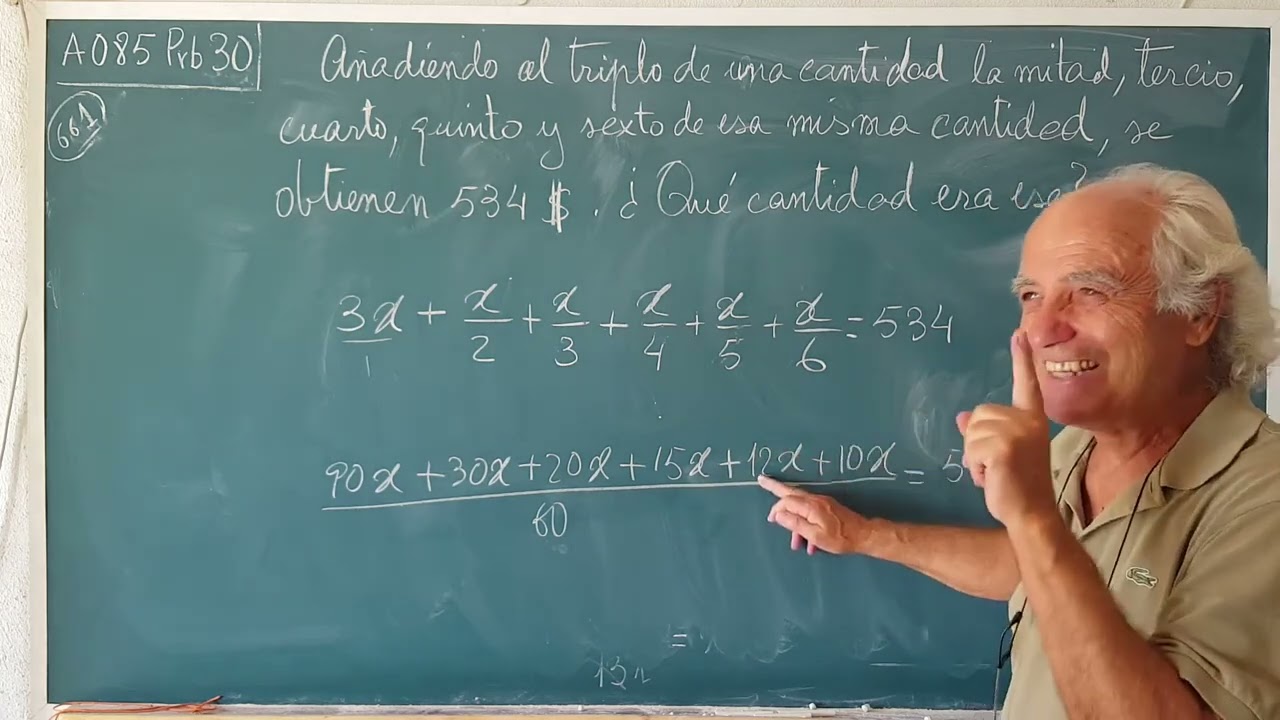 A085 Prb 30
661
Añadiendo al triplo de una cantidad la mitad, tercio,
cuarto, quinto y sexto de esa misma cantidad, se
obtienen 534 $. ¿Qué cantidad era esa?
3x/1 + x/2 + x/3 + x/4 + x/5 + x/6 = 534
90x + 30x + 20x + 15x + 12x + 10x = 5
60
=